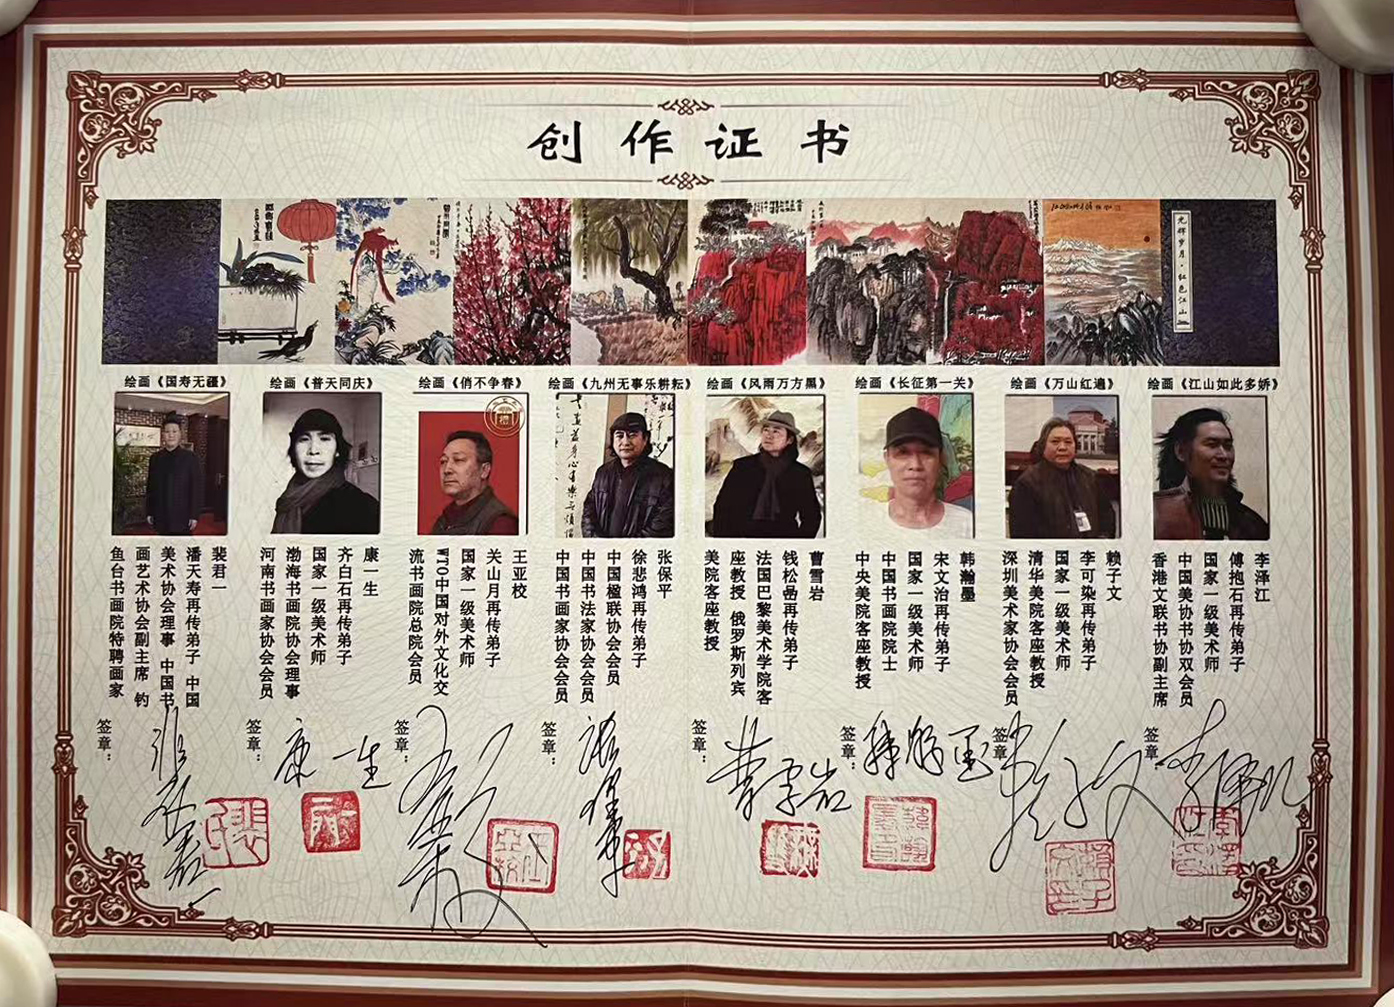 创作证书
光辉岁月·红色江山
绘画《国寿无疆》
绘画《普天同庆》
绘画《俏不争春》
绘画《九州无事乐耕耘》
绘画《风雨万方黑》
绘画《长征第一关》
绘画《万山红遍》
绘画《江山如此多娇》
裴君一
潘天寿再传弟子 中国
美术协会理事 中国书
画艺术协会副主席 钓
鱼台书画院特聘画家
康一生
齐白石再传弟子
国家一级美术师
渤海书画院协会理事
河南书画家协会会员
王亚校
关山月再传弟子
国家一级美术师
WTO中国对外文化交
流书画院总院会员
张保平
徐悲鸿再传弟子
中国楹联协会会员
中国书法家协会会员
中国书画家协会会员
曹雪岩
钱松嵒再传弟子
法国巴黎美术学院客
座教授 俄罗斯列宾
美院客座教授
韩瀚墨
宋文治再传弟子
国家一级美术师
中国书画院院士
中央美院客座教授
赖子文
李可染再传弟子
国家一级美术师
清华美院客座教授
深圳美术家协会会员
李泽江
傅抱石再传弟子
国家一级美术师
中国美协书协双会员
香港文联书协副主席
签章：
签章：
康一生
签章：
签章：
签章：
曹雪岩
签章：
韩瀚墨
签章：
签章：